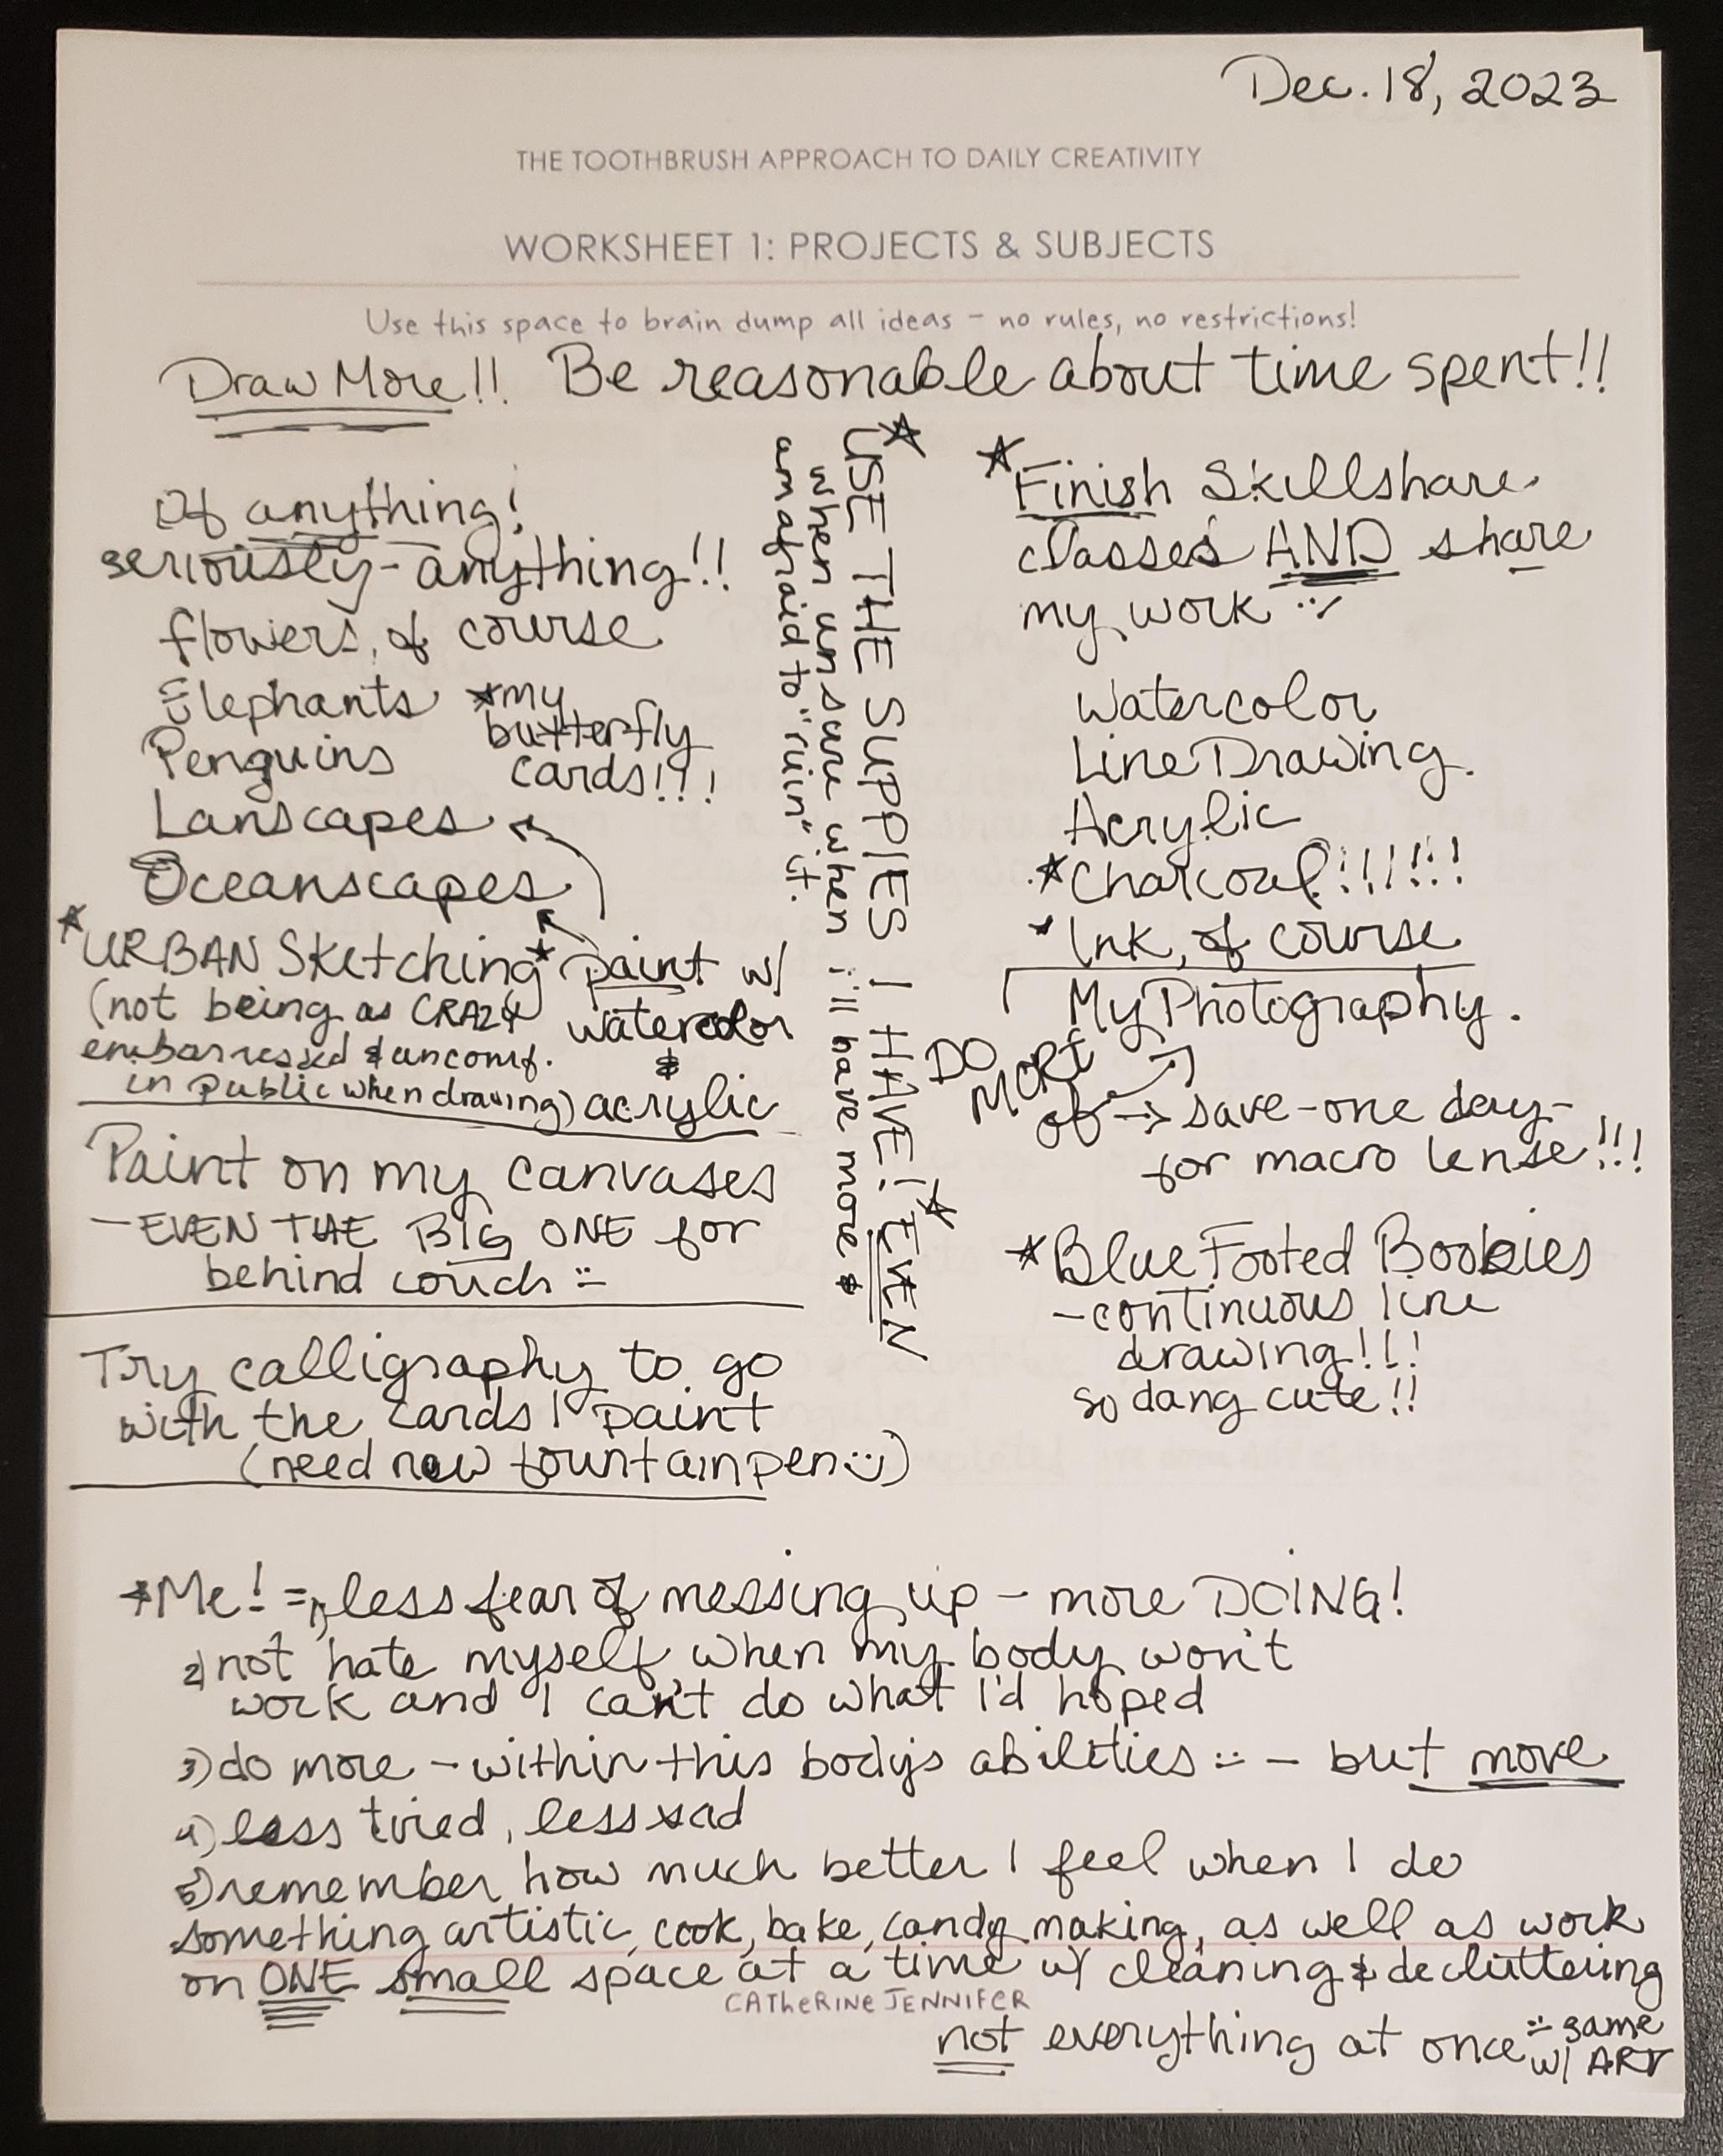 Dec. 18, 2023
THE TOOTHBRUSH APPROACH TO DAILY CREATIVITY
WORKSHEET 1: PROJECTS & SUBJECTS
Use this space to brain dump all ideas - no rules, no restrictions!
Draw More!! Be reasonable about time spent!!
Of anything!
seriously-anything!!
flowers, of course
Elephants
Penguins
*my
butterfly
cards!!!
Lanscapes
Oceanscapes
*URBAN Sketching*
(not being as CRAZY
embarressed & uncomf.
in public when drawing)
paint w/
watercolor
&
acrylic
Paint on my canvases
-EVEN THE BIG ONE for
behind couch :-
Try calligraphy to go
with the cards I paint
(need new fountain pen :))
*USE THE SUPPIES I HAVE!* EVEN
when unsure when i'll have more &
am afraid to "ruin" it.
*Finish Skillshare
classes AND share
my work :-/
Watercolor
Line Drawing.
Acrylic
*Charcoal!!!!!!
*Ink, of course
My Photography.
DO
MORE
of -> save-one day-
for macro lense!!!
*Blue Footed Boobies
-continuous line
drawing!!!
so dang cute!!
*Me! = 1) less fear of messing up - more DOING!
2) not hate myself when my body won't
work and I can't do what I'd hoped
3) do more - within this body's abilities :- - but move
4) less tired, less sad
5) remember how much better I feel when I do
something artistic, cook, bake, candy making, as well as work
on ONE small space at a time w/ cleaning & decluttering
CATHERINE JENNIFER
not everything at once :- same
w/ ART